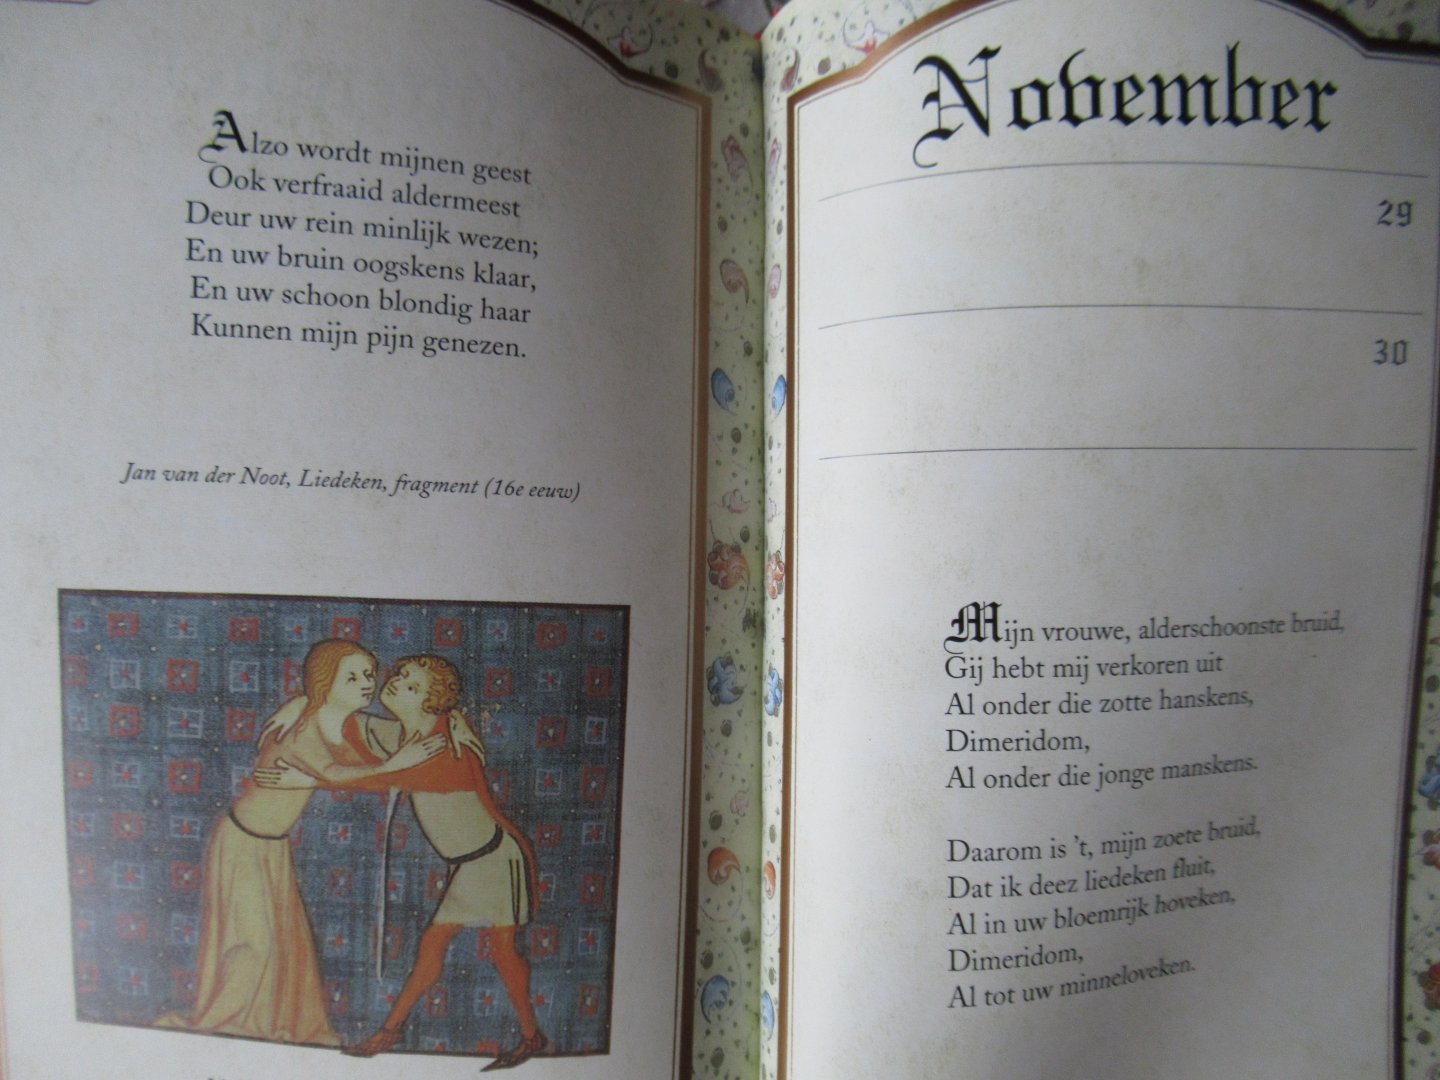 Alzo wordt mijnen geest
Ook verfraaid aldermeest
Deur uw rein minlijk wezen;
En uw bruin oogskens klaar,
En uw schoon blondig haar
Kunnen mijn pijn genezen.
Jan van der Noot, Liedeken, fragment (16e eeuw)
November
29
30
Mijn vrouwe, alderschoonste bruid,
Gij hebt mij verkoren uit
Al onder die zotte hanskens,
Dimeridom,
Al onder die jonge manskens.
Daarom is 't, mijn zoete bruid,
Dat ik deez liedeken fluit,
Al in uw bloemrijk hoveken,
Dimeridom,
Al tot uw minneloveken.